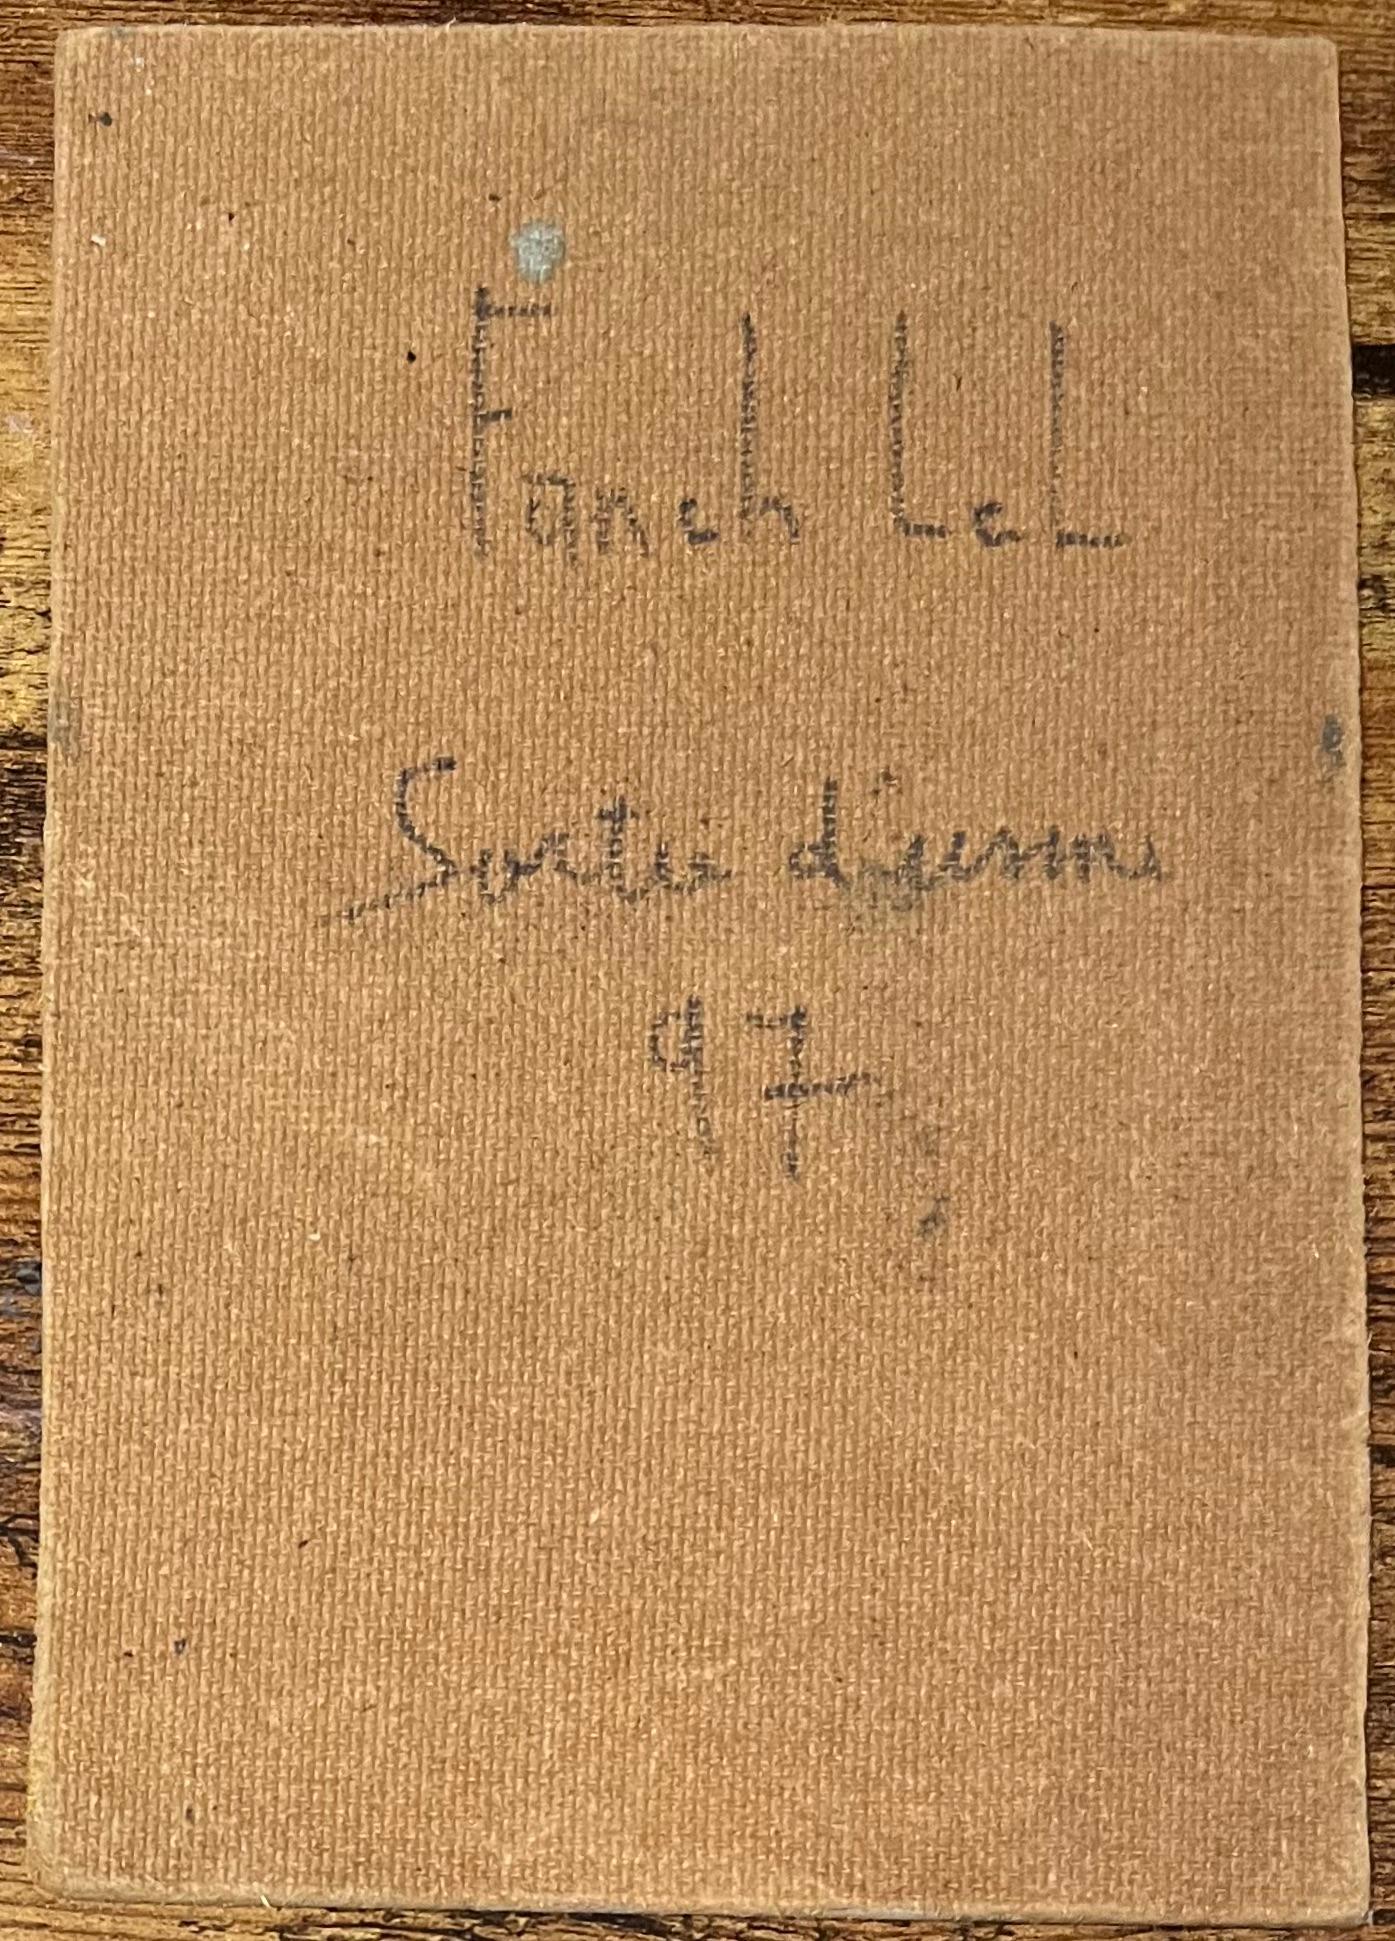 Fanch Lel
Sortie d'usine
97